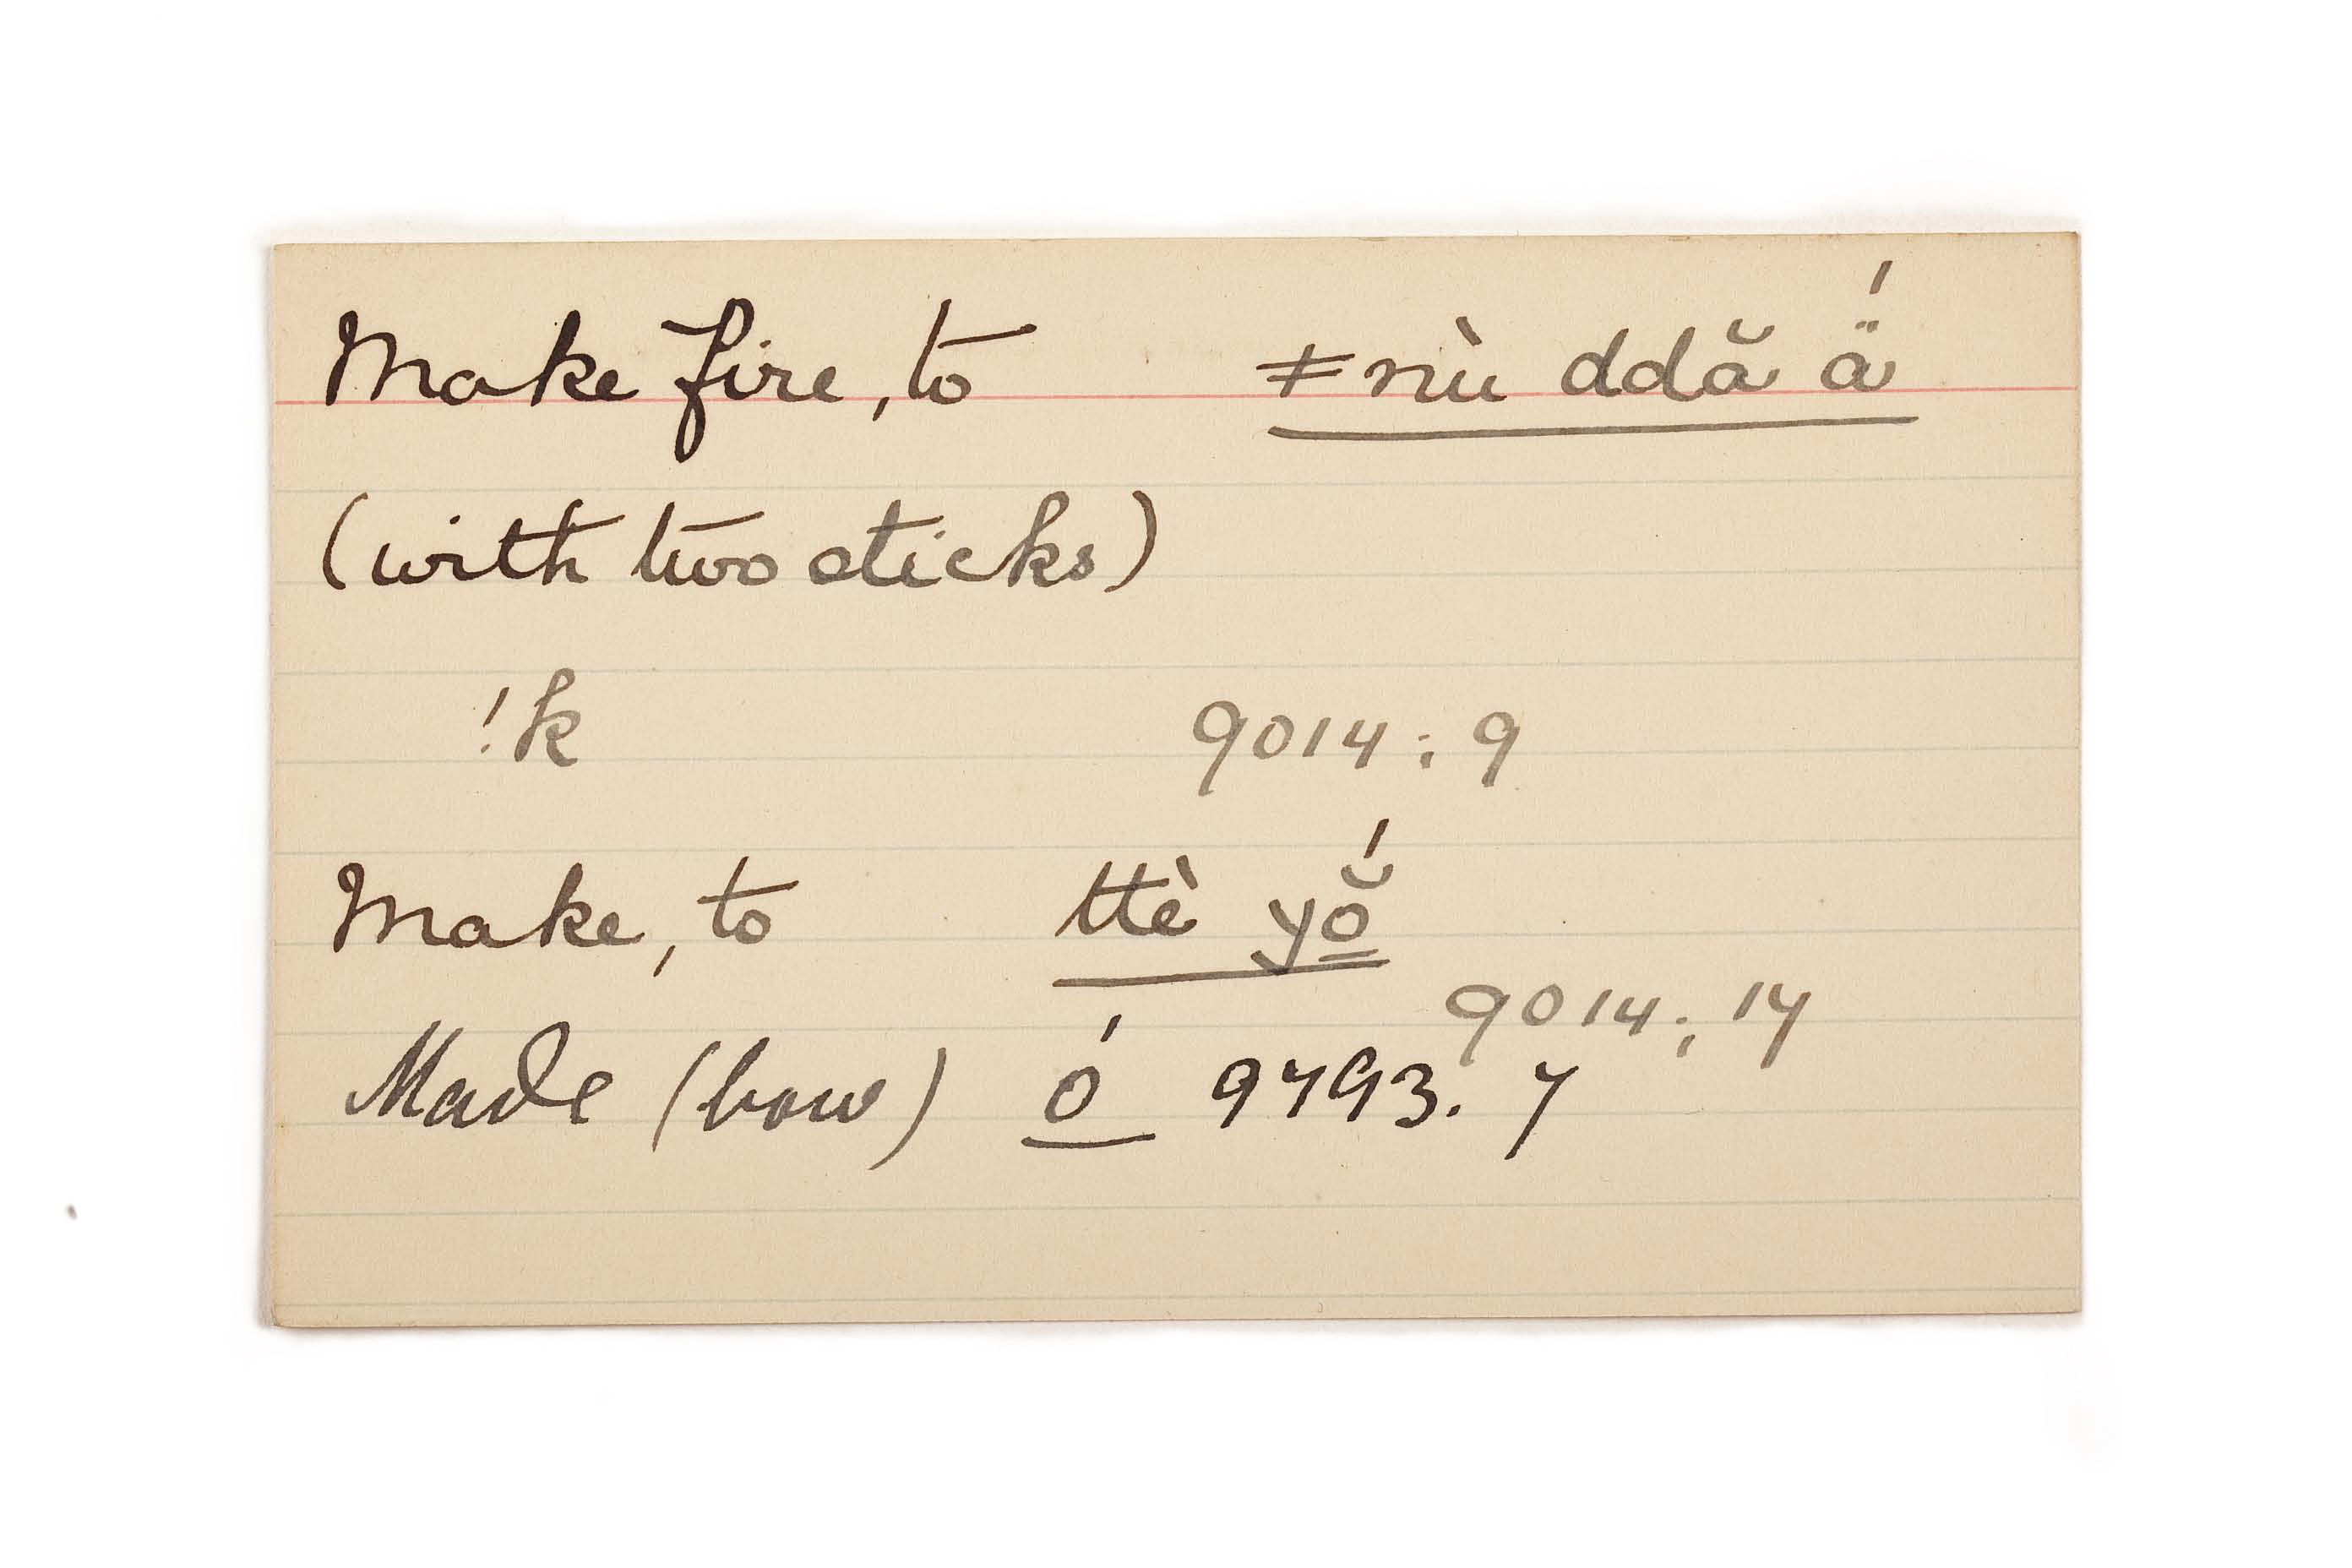 Make fire, to ǂnù ddă ä́
(with two sticks)
!k 9014 : 9
Make, to ttè yŏ̳́
9014 : 14
Made (bow) ó 9793. 7